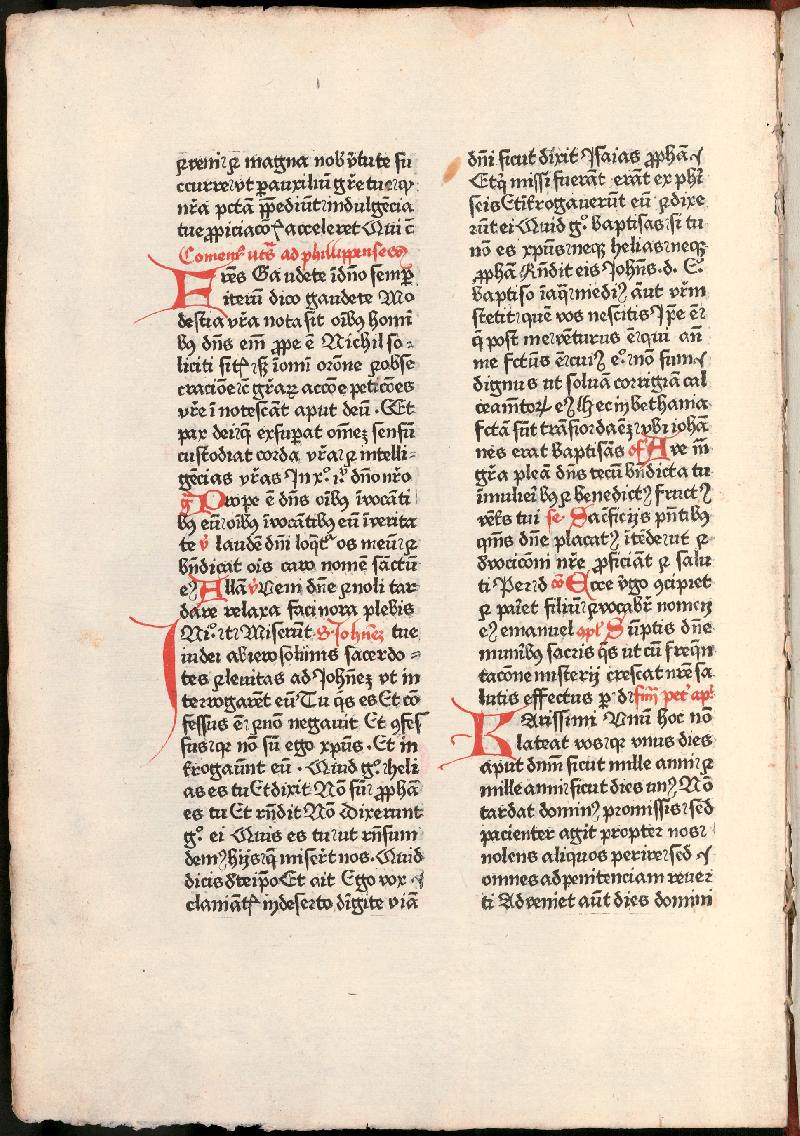 ⁊ veni ⁊ magna nob̄ v̄tute su
ccurre vt ꝑ auxiliū gr̄e tue qͥ
nr̄a pctā p̄pediūt indulgēcia
tue ꝓpiciacoꝭ acceleret Qui c̄
ad phillippenses
Frēs Gaudete ī dn̄o semꝑ
iterū dico gaudete Mo
destia vr̄a nota sit oībꝰ homī
bꝰ dn̄s eīm ꝓpe ē Nichil so⸗
liciti sitꝭ sꝫ ī omī orōne ⁊ obse
cracione c̄ gr̄aꝝ accōe peticōes
vr̄e ī notescāt aput deū · Et
pax dei q̄ exsuꝑat omēꝫ sensū
custodiat corda vr̄a ⁊ intelli⸗
gēcias vr̄as In xͦ. iͧ. dn̄o nr̄o
gͣ Prope ē dn̄s oībꝰ īvocāti
bꝰ eū oībꝰ īvocātibꝰ eū ī verita
te v̄ laudē dn̄i loqͣtꝰ os meū ⁊
bn̄dicat ois caro nomē sāctū
eꝰ Allā v̄ Veni dn̄e ⁊ noli tar
dare relaxa facinora plebis
Miserūt S. Johnēꝫ tue
iudei ab ierosolimis sacerdo⸗
tes ⁊ leuitas ad Johnēꝫ vt in
terrogarēt eū Tu qͥs es Et cō
fessus ē ⁊ nō negauit Et ꝯfes
sus qꝛ nō sū ego xpūs · Et in
t̄rogaūnt eū · Quid gͦ. heli
as es tu Et dixit Nō sū ꝓphā
es tu Et rn̄dit Nō Dixerunt
gͦ. ei Quis es tu ut rn̄sum
demꝰ hijs q̄ miserūt nos · Quid
dicis de teip̄o Et ait Ego vox
clamātꝭ in deserto dīgite viā
dn̄i sicut dixit Isaias ꝓphā
Et qͥ missi fuerāt erāt ex phī
seis Et īt̄rogauerūt eū ⁊ dixe
rūt ei Quid gͦ. baptisas si tu
nō es xpūs neqꝫ helias neqꝫ
ꝓphā Rn̄dit eis John̄s. d. Eͦ.
baptiso ī aqͣ medīꝰ aūt vr̄m
stetit quē vos nescitis Ip̄e ē
q post me vēturus ē qui an̄
me fctūs ē cuiꝰ eͦ. nō sum
dignus ut soluā corrigiā cal
ceamētoꝝ eꝰ hec in bethania
fctā sūt trās iordaēꝫ vbi iohā
nēs erat baptisās of Ave m̄
gr̄a pleā dn̄s tecū bn̄dicta tu
ī mulierībꝰ ⁊ benedictꝰ fructꝰ
vētris tui se. Sacīficijs pn̄tibꝰ
qm̄s dn̄e placatꝰ ītēde ut ⁊
dvocioni nr̄e ꝓficiāt ⁊ salu
ti Per d cō Ecce vͦgo ꝯcipiet
⁊ pariet filiū ⁊ vocabr̄ nomē
eꝰ emanuel Sūptis dn̄e
munībꝰ sacris qͣs ut cū freqn̄
tacōne misterij crescat nr̄e sa
lutis effectus ꝑ d̄ sīm pet̄ apͣ
Karissimi Vnū hoc nō
lateat vos qꝛ vnus dies
aput dnm̄ sicut mille anni ⁊
mille anni sicut dies unꝰ Nō
tardat dominꝰ promissis sed
pacienter agit propter nos
nolens aliquos perire sed
omnes ad penitenciam reuer
ti Adveniet aūt dies domini